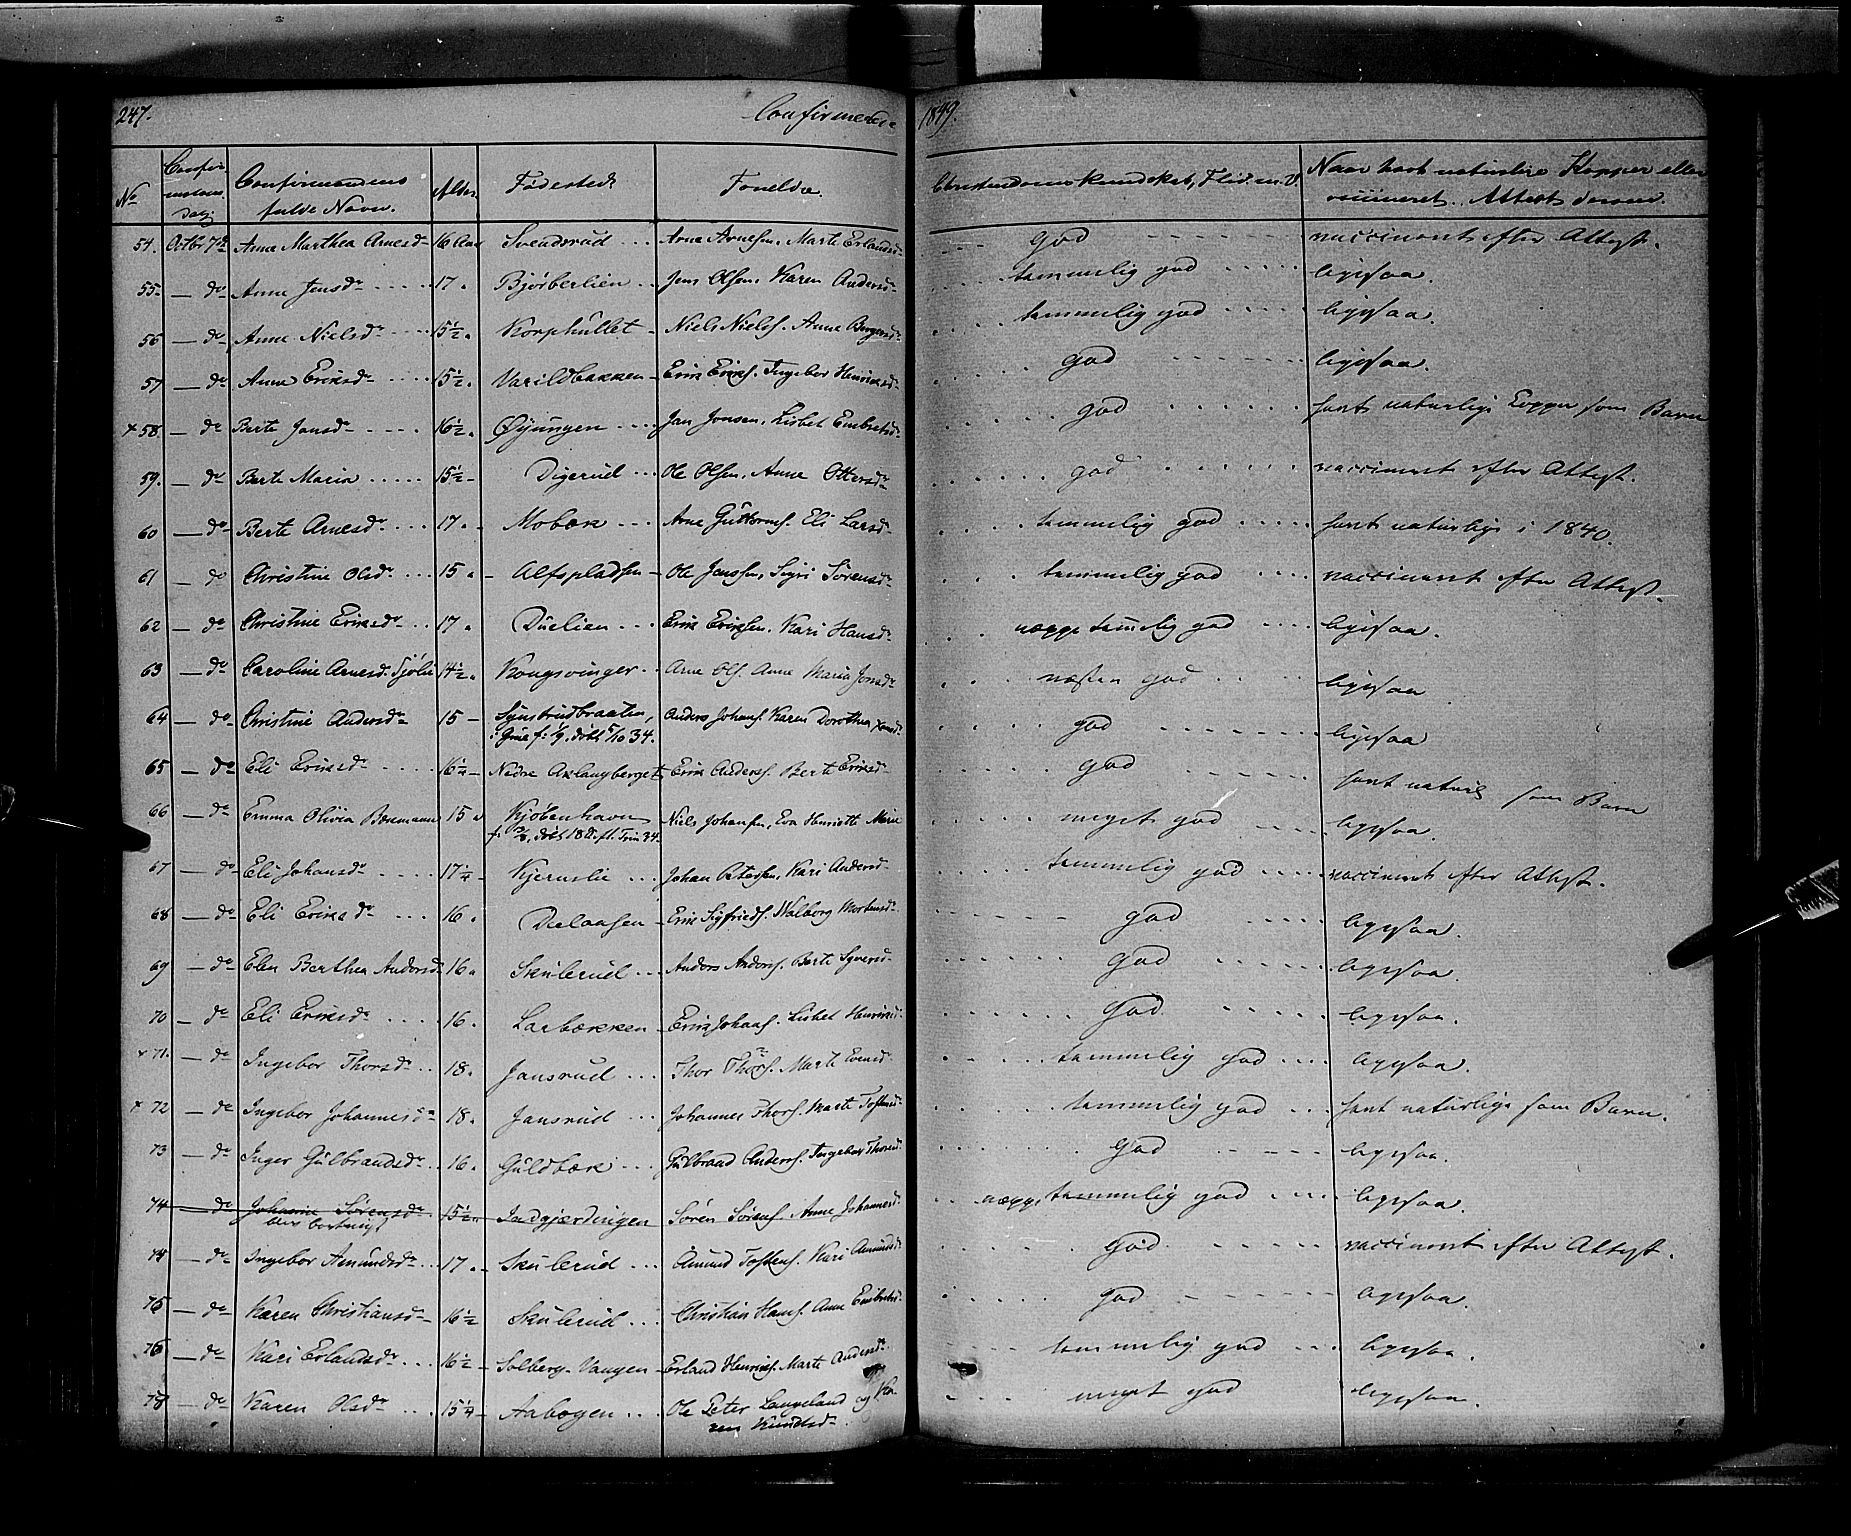 247. Confirmerede 1849.
No Confirmations dag Confirmandens fulde Navn. Alder Fødested Forældre. Christendoms Kundskab, Flid m. V. Naar havt naturlige Kopper eller vaccineret. Attest derom.
54. Octbr 7de Anne Marthea Arnesdr 16 Aar Svendsrud Arne Arnesen, Marte Erlandsdr god vaccineret efter Attest.
55 — do Anne Jensdr 17 Bjørberlien Jens Olsen, Karen Andersdr temmelig god ligesaa.
56 — do Anne Nielsdr 15½ Korphullet Niels Nielss. Anne Bergersdr temmelig god ligesaa.
57 — do Anne Eriksdr 15½ Varildbakken Erik Eriks. Ingebor Henriksdr god ligesaa.
x 58 — do Berte Jansdr 16½ Øjungen Jan Jonsen, Lisbet Embretsdr god havt naturlige Kopper som Barn
59. — do Berte Maria 15½ Digerud Ole Olsen, Anne Ottersdr god vaccineret efter Attest.
60 — do Berte Arnesdr 17 Mobæk Arne Guttorms. Eli Larsdr temmelig god havt naturlige i 1840.
61 — do Christine Olsdr 15 Alfspladsen Ole Jenssen, Sigri Sørensdr temmelig god vaccineret efter Attest.
62 — do Christine Eriksdr 17 Duelien Erik Eriksen, Kari Hansdr næppe temelig god ligesaa.
63 — do Caroline Arnesd. Sjølie 14½ Kongsvinger Arne Ols. Anne Maria Jonsdr næsten god ligesaa
64 — do Christine Andersdr 15 Synstrudbraaten, Anders Johans. Karen Dorothea god ligesaa
i Grue f: 1/9, døbt 5/10 34.
65 — do Eli Eriksdr 16¼ Nedre Aklangberget Erik Anderss. Berte Eriksdr god havt naturl som Barn
66 — do Emma Olivia 15 Kjøbenhavn Niels Johansen, Eva Henriette Marie meget god ligesaa.
døbt 18de Trin 34.
67 — do Eli Johansdr 17¼ Kjernslie Johan Petersen, Kari Andersdr temmelig god vaccineret efter Attest.
68 — do Eli Eriksdr 16 Erik Sigfrieds. Walborg Mortensdr god ligesaa.
69 — do Elen Berthea Andersd 16 Skulerud Anders Anders. Berte Syversd god ligesaa.
70 — do Eli Eriksdr 16 Larbækken Erik Johans. Lisbet Henriksd. god ligesaa.
x 71. — do Ingebor Thorsdr 18 Jansrud Thor Thors. Marte Evensd temmelig god ligesaa.
x 72 — do Ingebor Johannesdr 18 Jansrud Johannes Thors. Marte Tostensd temmelig god havt naturlige som Barn.
73 — do Inger Gulbrandsdr 16 Guldbæk Gulbrand Anderss. Ingebor Thoresd. god ligesaa.
74 — do Johanne Sørensdr 15½ Indgjærdingen Søren Sørens. Anne Johannesd næppe temmelig god ligesaa.
blev bortviist
74 — do Ingebor Amundsdr 17 Skulerud Amund Tostens. Kari Amundsdr god vaccineret efter Attest.
75 — do Karen Christiansdr 16½ Skulerud Christian Hans. Anne Embretsd. god ligesaa.
76 — do Kari Erlandsdr 16½ Solberg-Vangen Erland Henriks. Marte Andersdr temmelig god ligesaa.
78 — do Karen Olsdr 15¼ Aabogen Ole Peter Langeland og Ka- meget god ligesaa.
ren Knudsdr